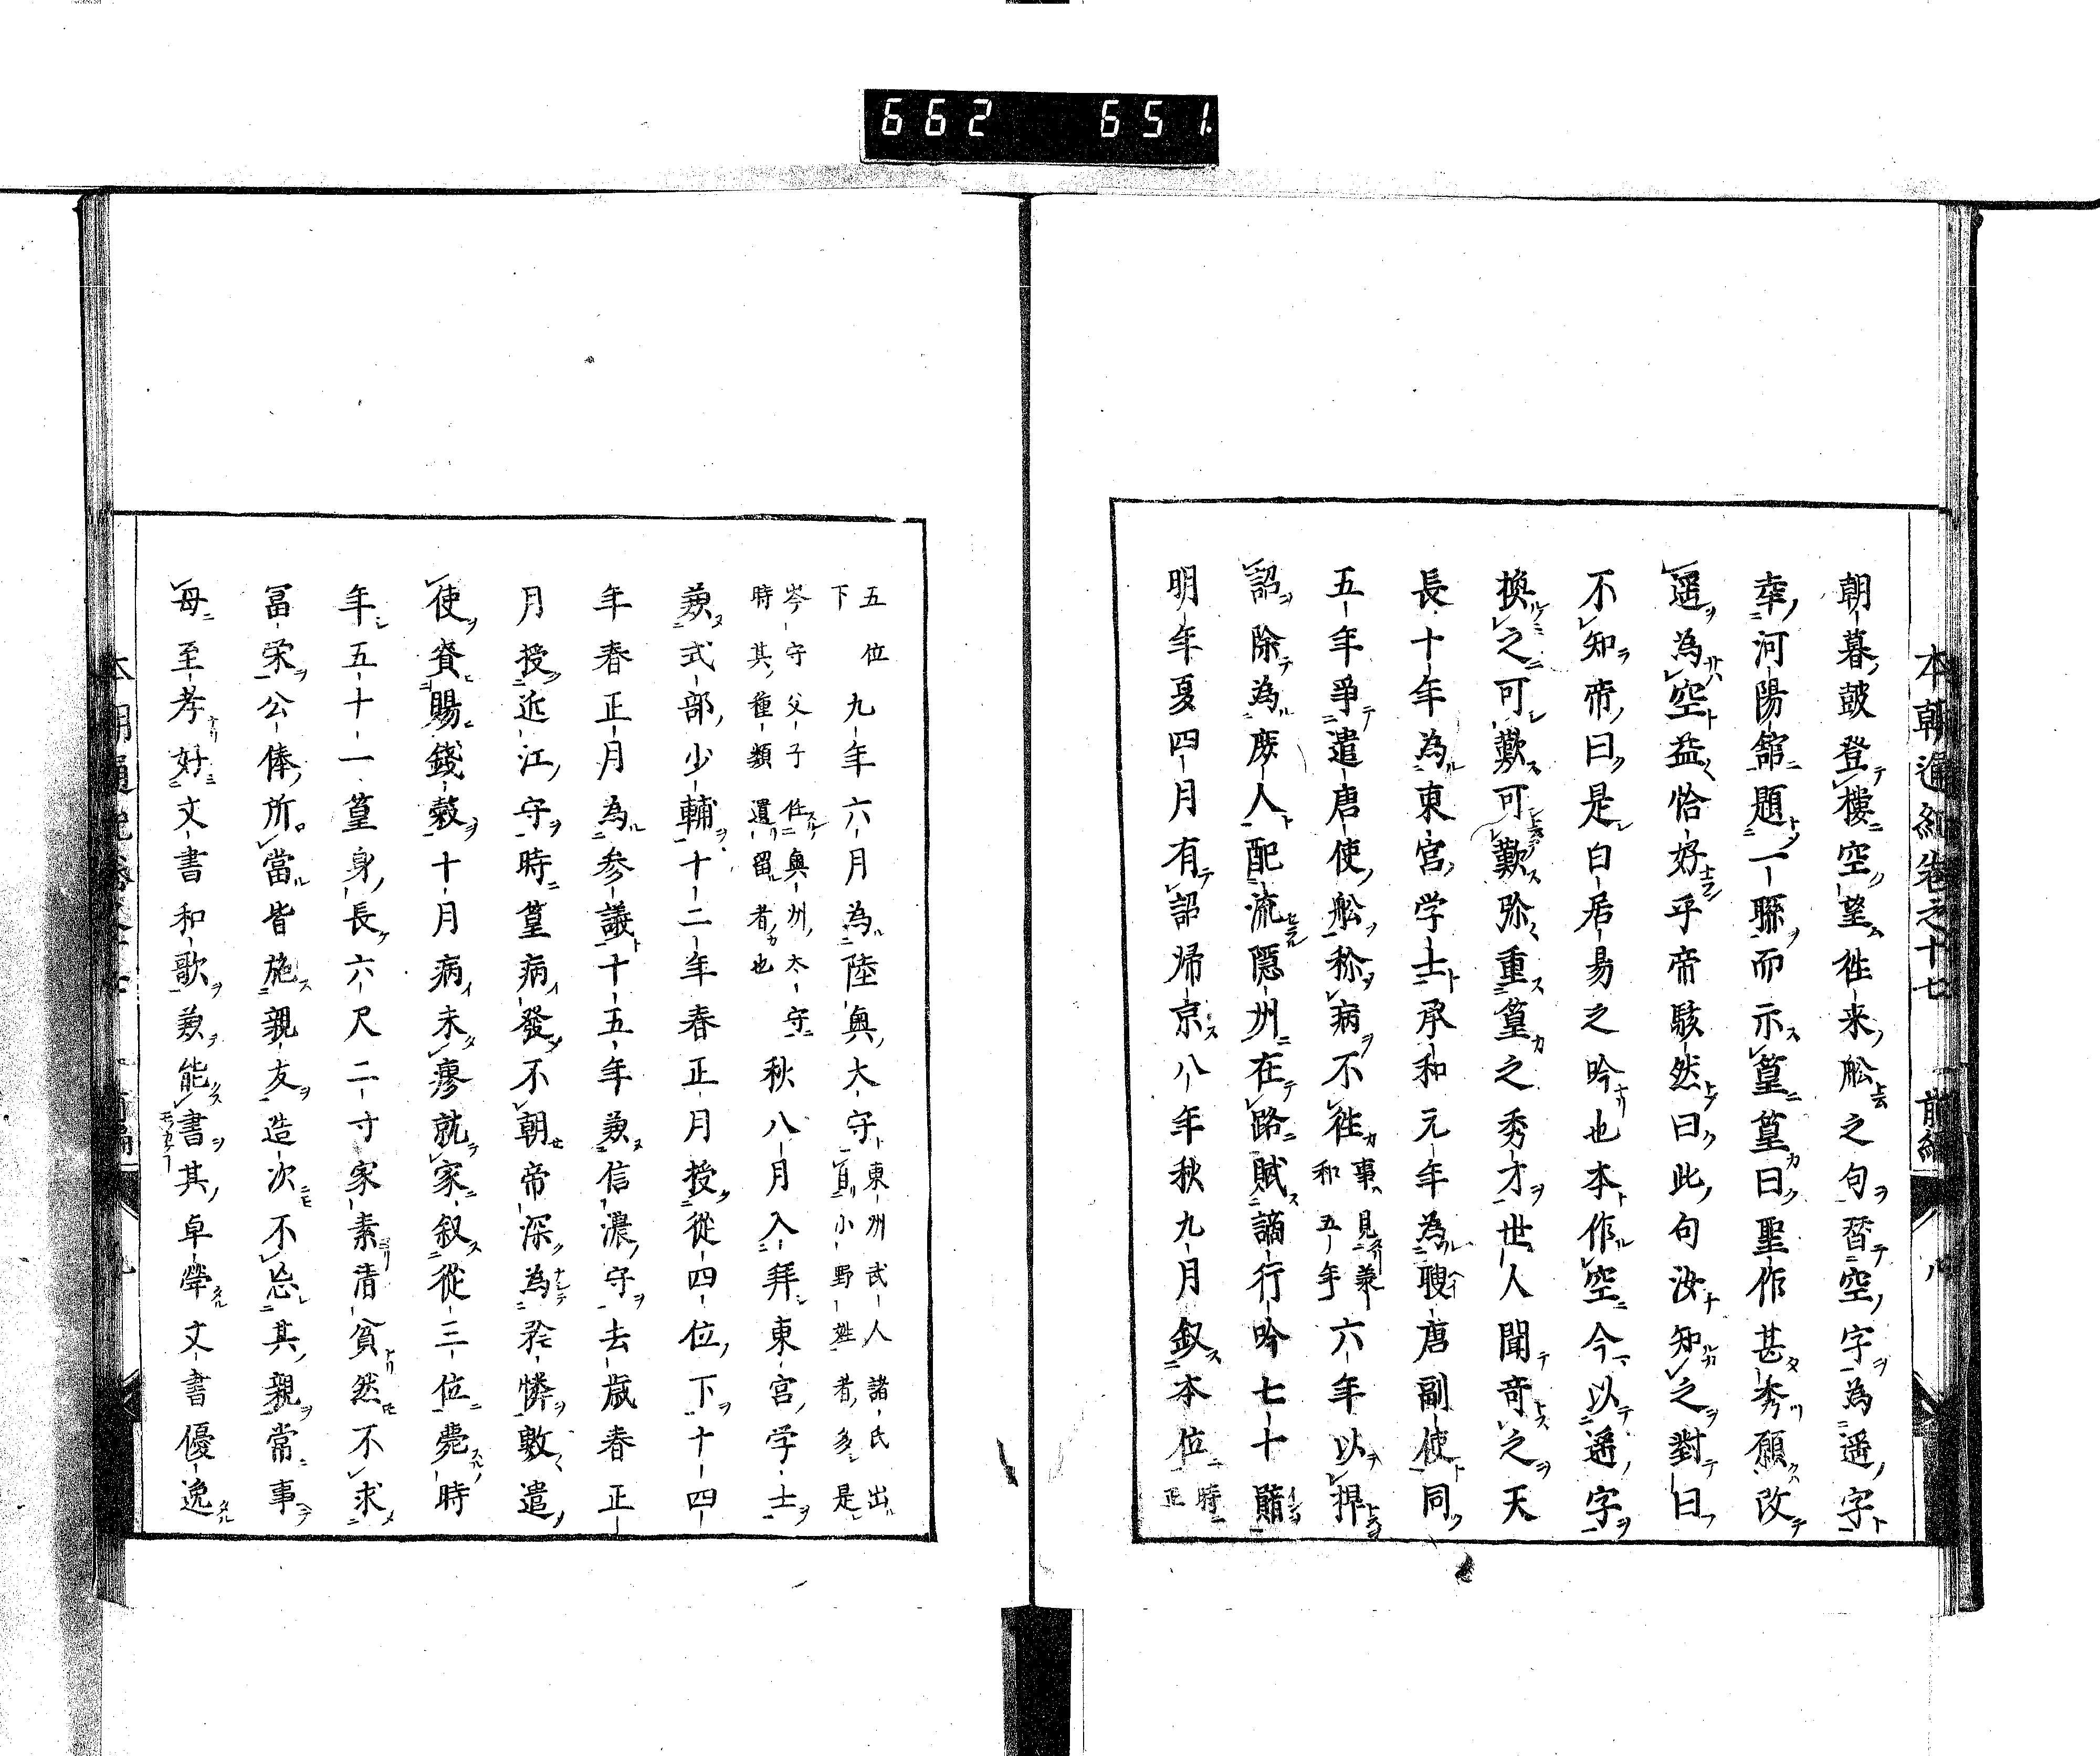 662 651.
本朝通紀卷之十七 前編 八
朝暮皷登樓空望徃来舩之句㬱空字為遥字
幸河陽舘題一聯而示篁篁曰聖作甚秀願改
遥為空益恰好乎帝駭然曰此句汝知之對曰
不知帝曰是白居易之吟也本作空今以遥字
換之可歎可歎弥重篁之秀才世人聞奇之天
長十年為東宮学士承和元年為聘唐副使同
五年爭遣唐使舩称病不徃事見承和五年六年以捍
詔除為庶人配流隠州在路賦謫行吟七十韻
明年夏四月有詔帰京八年秋九月叙本位時正
五位下九年六月為陸奥大守東州武人諸氏出自小野姓者多是
岑守父子任奥州太守時其種類遺留者也秋八月入拜東宮学士
兼式部少輔十二年春正月授從四位下十四
年春正月為参議十五年兼信濃守去歳春正
月授近江守時篁病發不朝帝深為矜憐數遣
使賚賜錢穀十月病未瘳就家叙從三位薨時
年五十一篁身長六尺二寸家素清貧然不求
冨栄公俸所當皆施親友造次不忘其親常事
母至孝好文書和歌兼能書其卓犖文書優逸